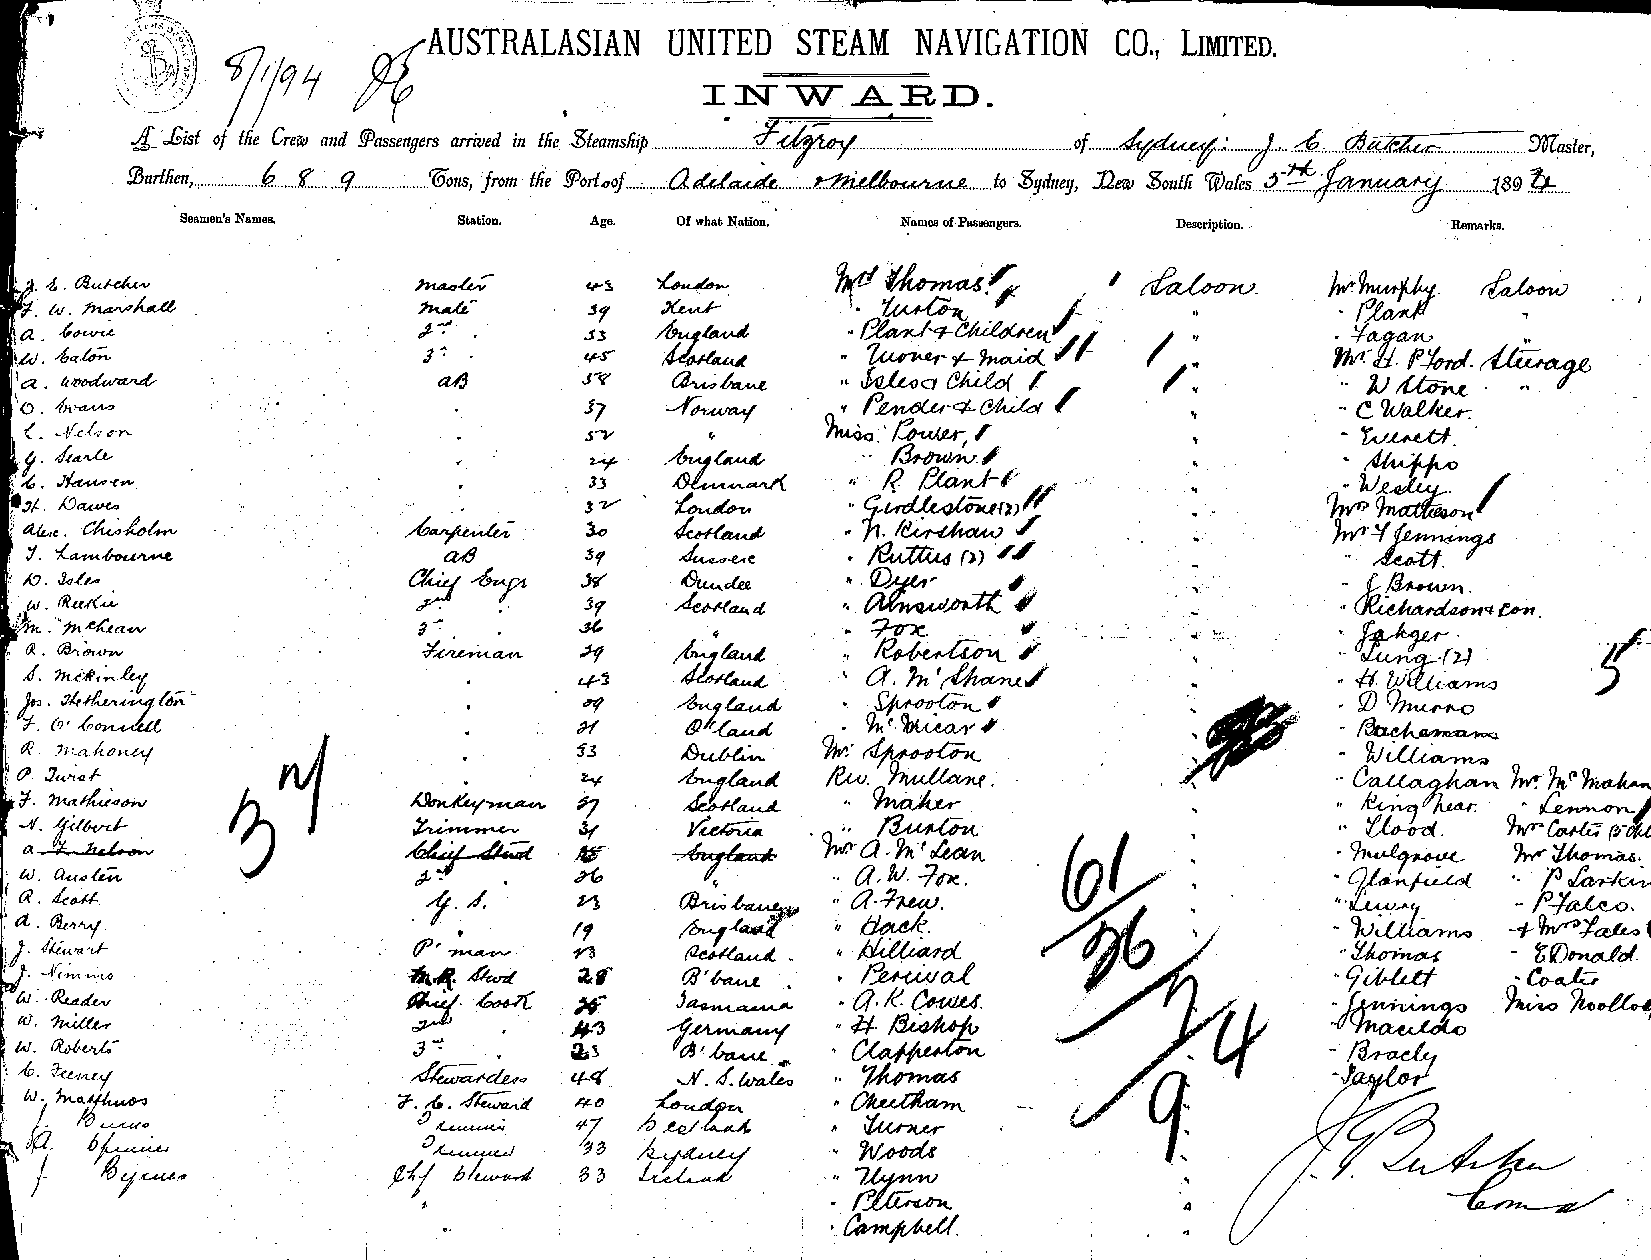 AUSTRALASIAN UNITED STEAM NAVIGATION CO., LIMITED.
8/1/94
INWARD.
A List of the Crew and Passengers arrived in the Steamship Fitzroy of Sydney: J. E. Butcher Master,
Burthen, 689 Tons, from the Port of Adelaide & Melbourne to Sydney, New South Wales 5th January 1894
Seamen's Names. Station. Age. Of what Nation. Names of Passengers. Description. Remarks.
J. E. Butcher master 43 London Mrs Thomas Saloon Mr Murphy Saloon
F. W. Marshall mate 39 Kent " Turton " - Plant "
A. Cowie 2nd " 33 England " Plant & Children " - Fagan "
W. Eaton 3rd " 45 Scotland " Turner & maid " Mr H. P Ford. Steerage
A. Woodward AB 58 Brisbane " Isles & Child " " W Stone "
O. Evans " 37 Norway " Pender & Child " " C Walker.
C. Nelson " 52 " Miss Power, " - Everett.
G. Searle " 24 England " Brown " " Shippo
C. Hansen " 33 Denmark " R. Plant " " Wesley
H. Dawes " 32 London " Girdlestone (2) " Mrs Matheson
Alex. Chisholm Carpenter 30 Scotland " N. Kirshaw " Mr F Jennings
T. Lambourne AB 39 Sussex " Ruttus (2) " " Scott.
D. Isles Chief Engr 38 Dundee " Dyer " - J Brown.
W. Reekie 2nd " 39 Scotland " Ainsworth " " Richardson & Son.
M. McLean 3rd " 36 " " Fox " "
R. Brown Fireman 29 England " Robertson " " Lung (2)
S. McKinley " 43 Scotland " A. McShane " " H. Williams 5
Jos. Hetherington " 29 England " Sprooton " - D Munro
F. O'Connell " 21 " McVicar " -
R. Mahoney " 33 Dublin Mr. Sprooton " - Williams
P. Twist " 24 England Rev. Mullane. " " Callaghan Mr. McMahon
F. Mathieson Donkeyman 27 Scotland " Maher " " King Lennon
N. Gilbert Trimmer 31 Victoria " Burton " " Flood. Mrs Carter
A. F. Nelson Chief Stwd England Mr A. McLean " - Mulgrove Mr Thomas.
W. Austen 2nd " 26 " " A. W. Fox. " " Glanfield " P Larkin
R. Scott G. S. 23 Brisbane " A. Frew. " - P Falco.
A. Berry " 19 England " Hack. " " Williams & Mrs Fales
J. Stewart P'man 23 Scotland " Hilliard " " Thomas - E Donald.
J. Nimmo M.R. Stwd 28 B'bane " Percival " " Giblett - Coater
W. Reader Chief Cook Tasmania " A. K. Cowes. " - Jennings Miss
W. Miller 2nd " 43 Germany " H. Bishop "
W. Roberts 3rd " 23 B'bane " Clapperton " - Bracly
C. Feeney Stewardess 48 N. S. Wales " Thomas " - Taylor
W. Matthews F. C. Steward 40 London " Cheetham "
J. Burns Trimmer 47 Scotland " Turner "
A. Trimmer 33 Sydney " Woods "
J. Byrnes Chf Steward 33 Ireland " Flynn " J. E. Butcher
" Peterson "
" Campbell. "
61
26
7
9 4